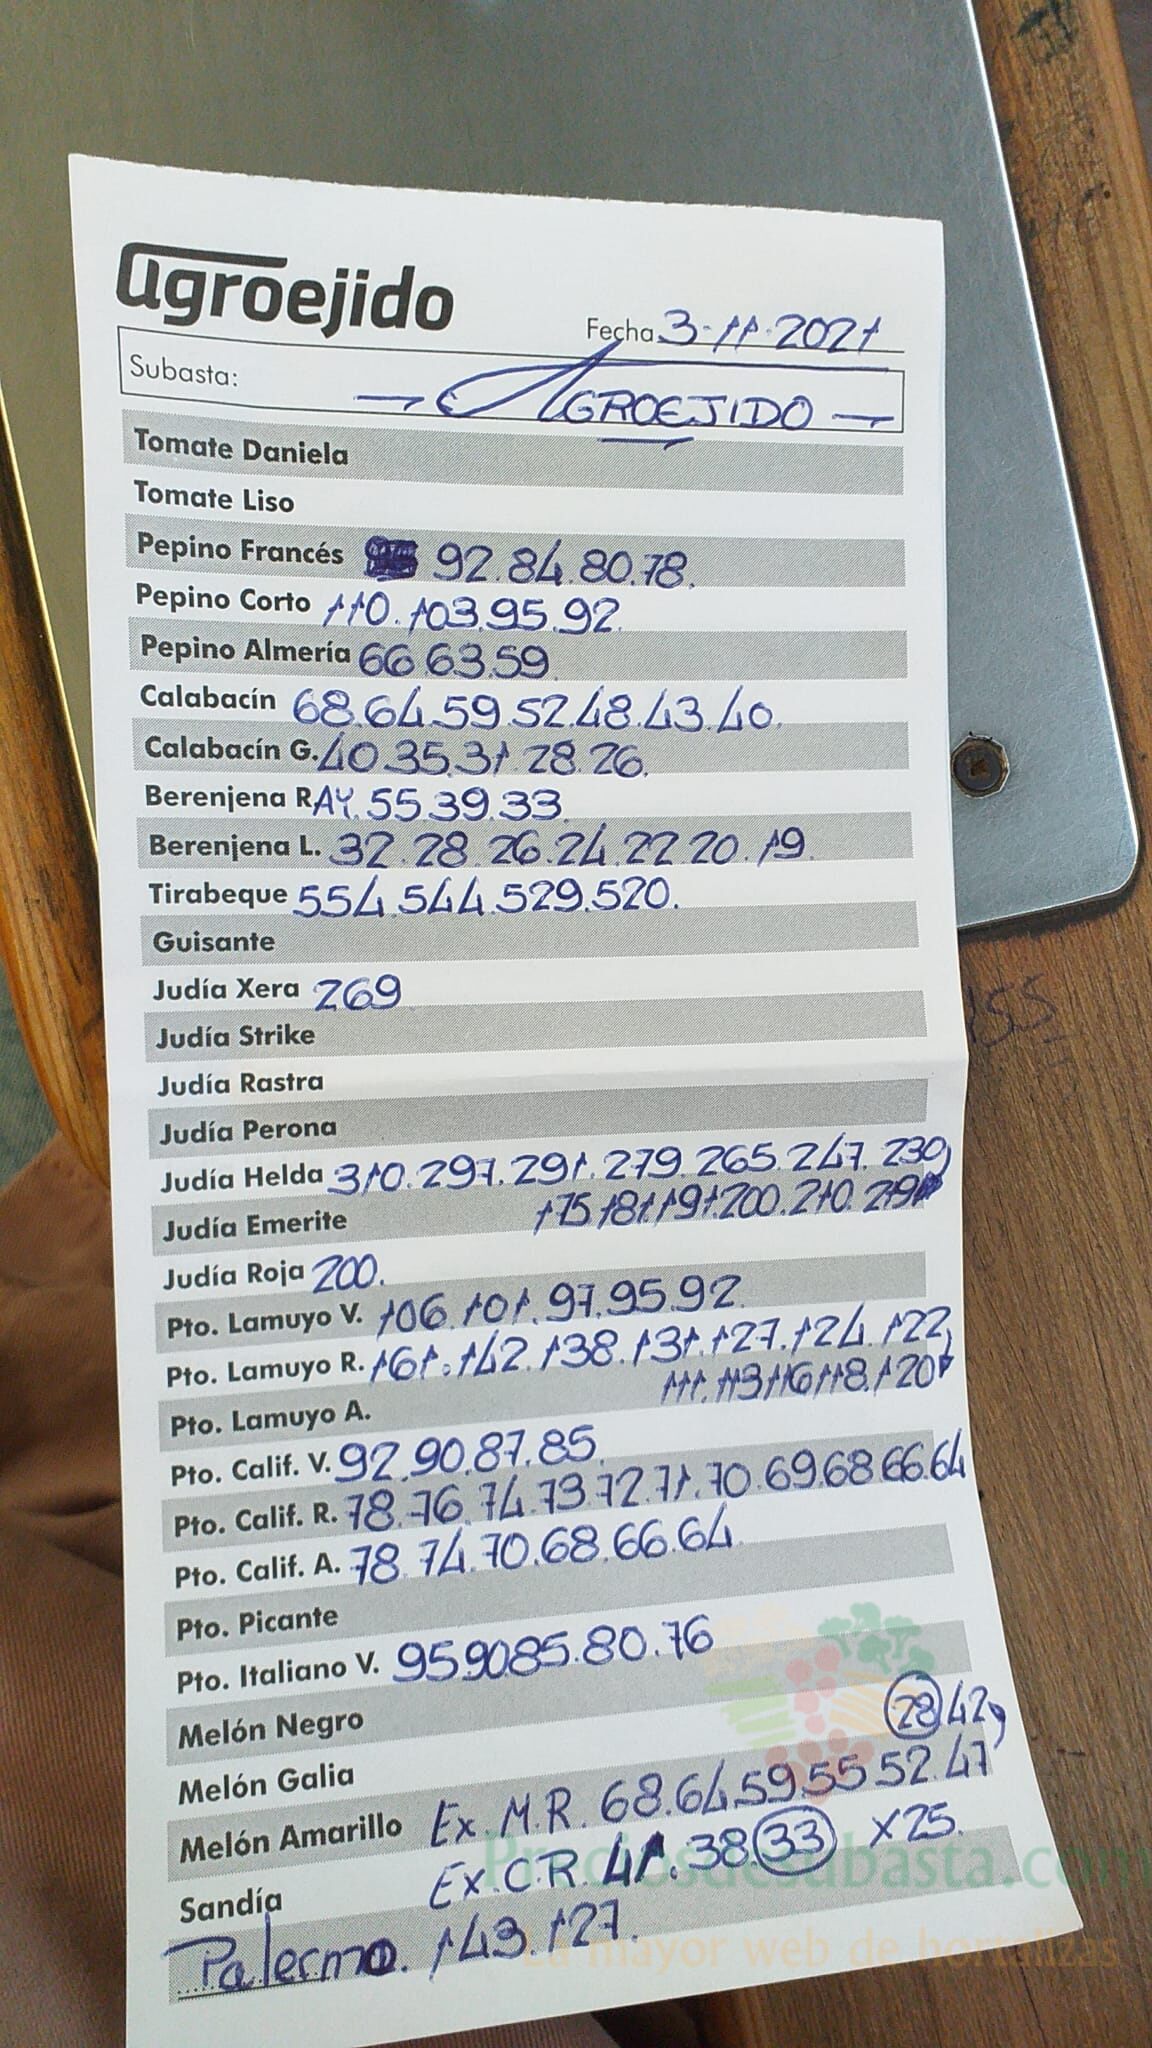 agroejido
Fecha 3-11-2021
Subasta: — AGROEJIDO —
Tomate Daniela
Tomate Liso
Pepino Francés 92.84.80.78.
Pepino Corto 110.103.95.92.
Pepino Almería 66 63.59
Calabacín 68.64.59.52.48.43.40.
Calabacín G. 40.35.31.28.26.
Berenjena RAY. 55.39.33.
Berenjena L. 32.28.26.24.22.20.19.
Tirabeque 554.544.529.520.
Guisante
Judía Xera 269
Judía Strike
Judía Rastra
Judía Perona
Judía Helda 310.297.291.279.265.247.230
175.181.191.200.210.219
Judía Emerite
Judía Roja 200.
Pto. Lamuyo V. 106.101.97.95.92.
Pto. Lamuyo R. 161.142.138.131.127.124.122
111.113.116.118.120
Pto. Lamuyo A.
Pto. Calif. V. 92.90.87.85.
Pto. Calif. R. 78.76.74.73.72.71.70.69.68.66.64
Pto. Calif. A. 78.74.70.68.66.64.
Pto. Picante
Pto. Italiano V. 95.90.85.80.76
Melón Negro
28 42
Melón Galia
Melón Amarillo Ex.M.R. 68.64.59.55.52.47
Sandía Ex.C.R. 41.38 33 X25.
Palermo. 143.127.
Preciosdesubasta.com
La mayor web de hortalizas
155